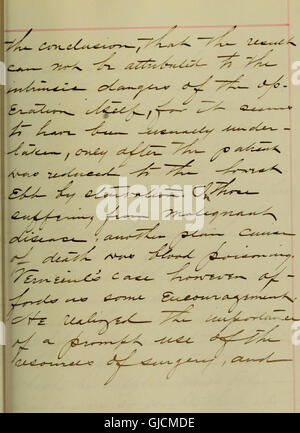 the conclusion, that the result
can not be attributed to the
intrinsic dangers of the op-
eration itself, for it seems
to have been usually under-
taken, only after the patient
was reduced to the lowest
Ebb by starvation. Of those
suffering from malignant
disease, another plain cause
of death was blood poisoning.
Verneuil's case however af-
fords us some Encouragement.
He realized the importance
of a prompt use of the
resources of surgery, and
alamy
Image ID: GJCMDE
www.alamy.com